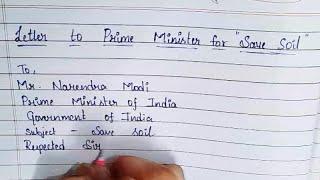 Letter to Prime Minister for "Save Soil"
To,
Mr Narendra Modi
Prime Minister of India
Government of India
Subject - Save soil
Repected Sir